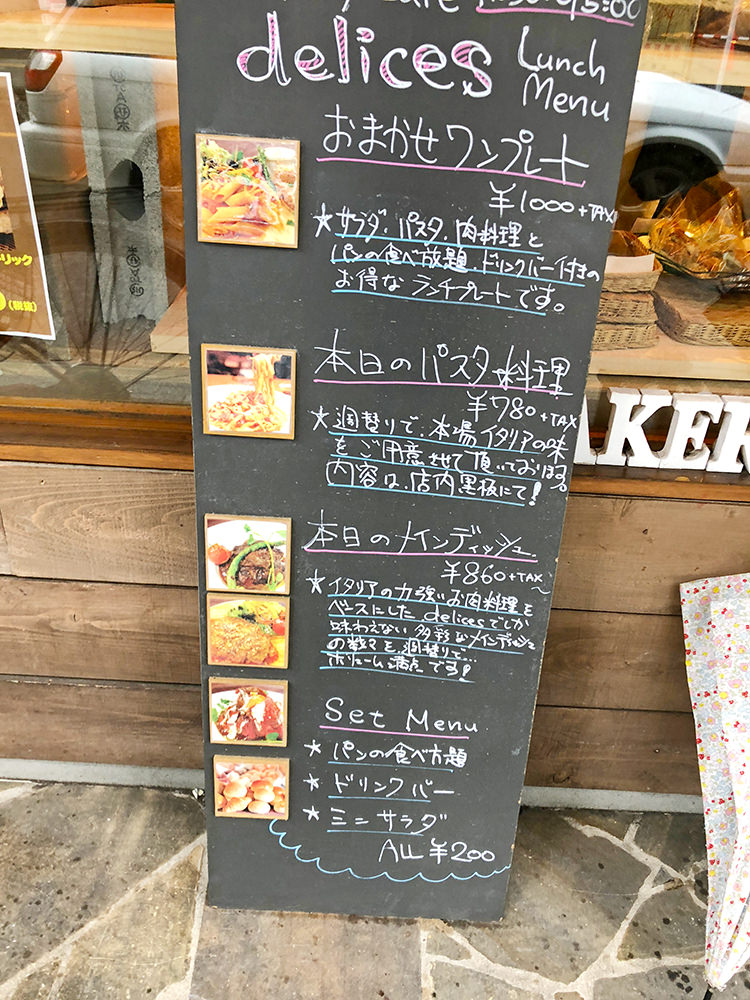 delices Lunch Menu
おまかせワンプレート
¥1000+TAX
★サラダ、パスタ、肉料理と
パンの食べ放題、ドリンクバー付きの
お得なランチプレートです。
本日のパスタ料理
¥780+TAX
★週替りで、本場イタリアの味
をご用意させて頂いております。
内容は、店内黒板にて!
本日のメインディッシュ
¥860+TAX~
★イタリアの力強いお肉料理を
ベースにした delicesでしか
味わえない多彩なメインディッシュ
の数々を、週替りで…
ボリューム満点です!
Set Menu
★パンの食べ方題
★ドリンクバー
★ミニサラダ
ALL ¥200
リック
(税抜)
AKER